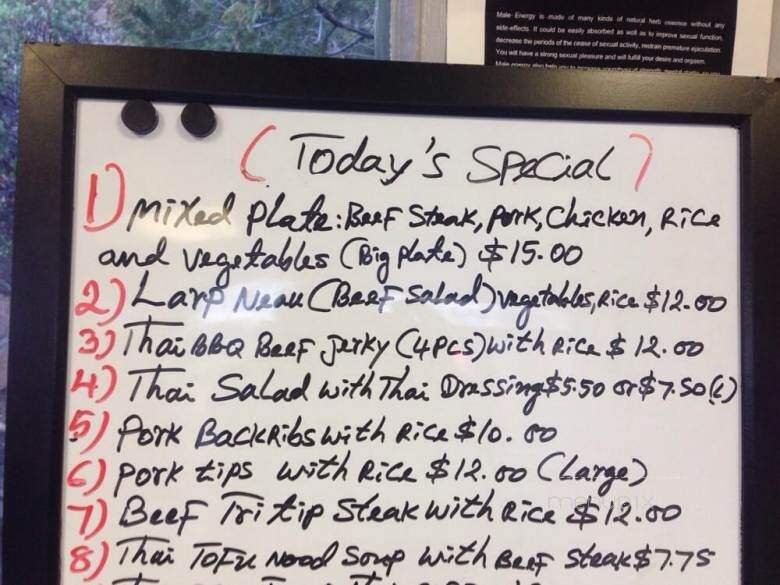 Male- Energy is made of many kinds of natural herb essence without any
side-effects. It could be easily absorbed as well as to improve sexual function,
decrease the periods of the cease of sexual activity, restrain premature ejaculation.
You will have a strong sexual pleasure and will fulfill your desire and orgasm.
(Today's Special)
1) Mixed Plate: Beef Steak, Pork, Chicken, Rice
and vegetables (Big Plate) $15.00
2) Larp Neau (Beef Salad) vegetables, Rice $12.00
3) Thai BBQ Beef Jerky (4PCS) with Rice $12.00
4) Thai Salad with Thai Dressing $5.50 or $7.50 (L)
5) Pork Back Ribs with Rice $10.00
6) Pork tips with Rice $12.00 (Large)
7) Beef Tri tip Steak with Rice $12.00
8) Thai Tofu Nood Soup with Beef Steak $7.75